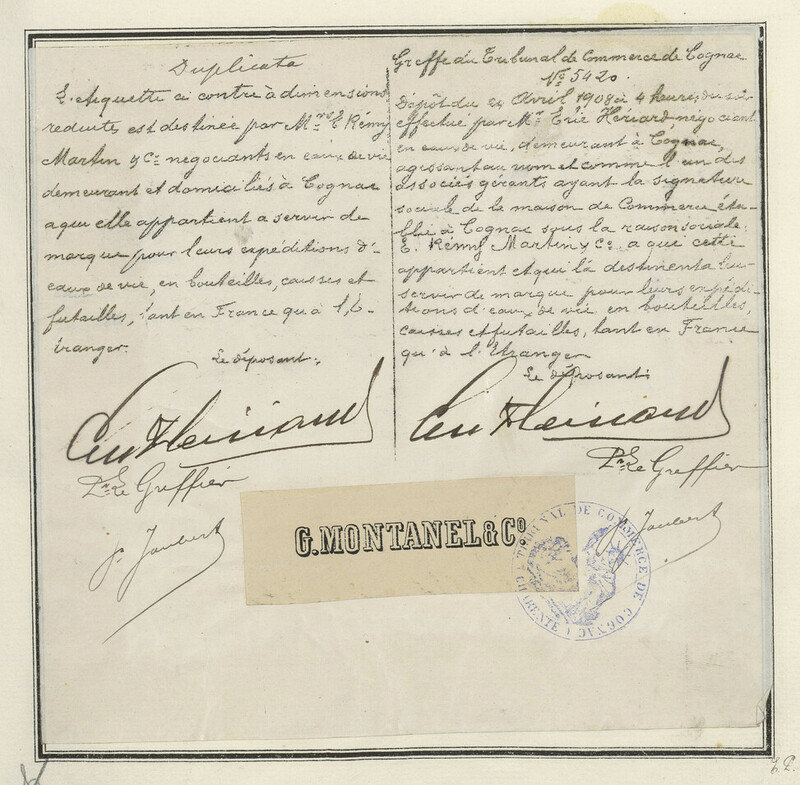 Duplicata
L'étiquette ci contre à dimensions
réduites est destinée par Mrs E. Rémy
Martin & Cie negociants en eaux de vie
demeurant et domiciliés à Cognac
a qui elle appartient a servir de
marque pour leurs expéditions d'
eaux de vie, en bouteilles, caisses et
futailles, tant en France qu'à l'É-
tranger.
Le déposant:
Pr Le Greffier
P. Joubert
Greffe du Tribunal de Commerce de Cognac
No 5420.
Dépôt du 24 Avril 1908 à 4 heures du soir
effectué par Mr Eric Hériard, négociant
en eaux de vie, demeurant à Cognac,
agissant au nom et comme l'un des
associés gérants ayant la signature
sociale de la maison de Commerce éta-
blie à Cognac sous la raison sociale:
E. Rémy Martin & Co. a que cette
appartient et qui la destinent a leur
servir de marque pour leurs expédi-
tions d'eaux de vie en bouteilles,
caisses et futailles, tant en France
qu'à l'Etranger
Le déposant:
Pr Le Greffier
Joubert
G. MONTANEL & Co.
TRIBUNAL DE COMMERCE DE COGNAC (CHARENTE)